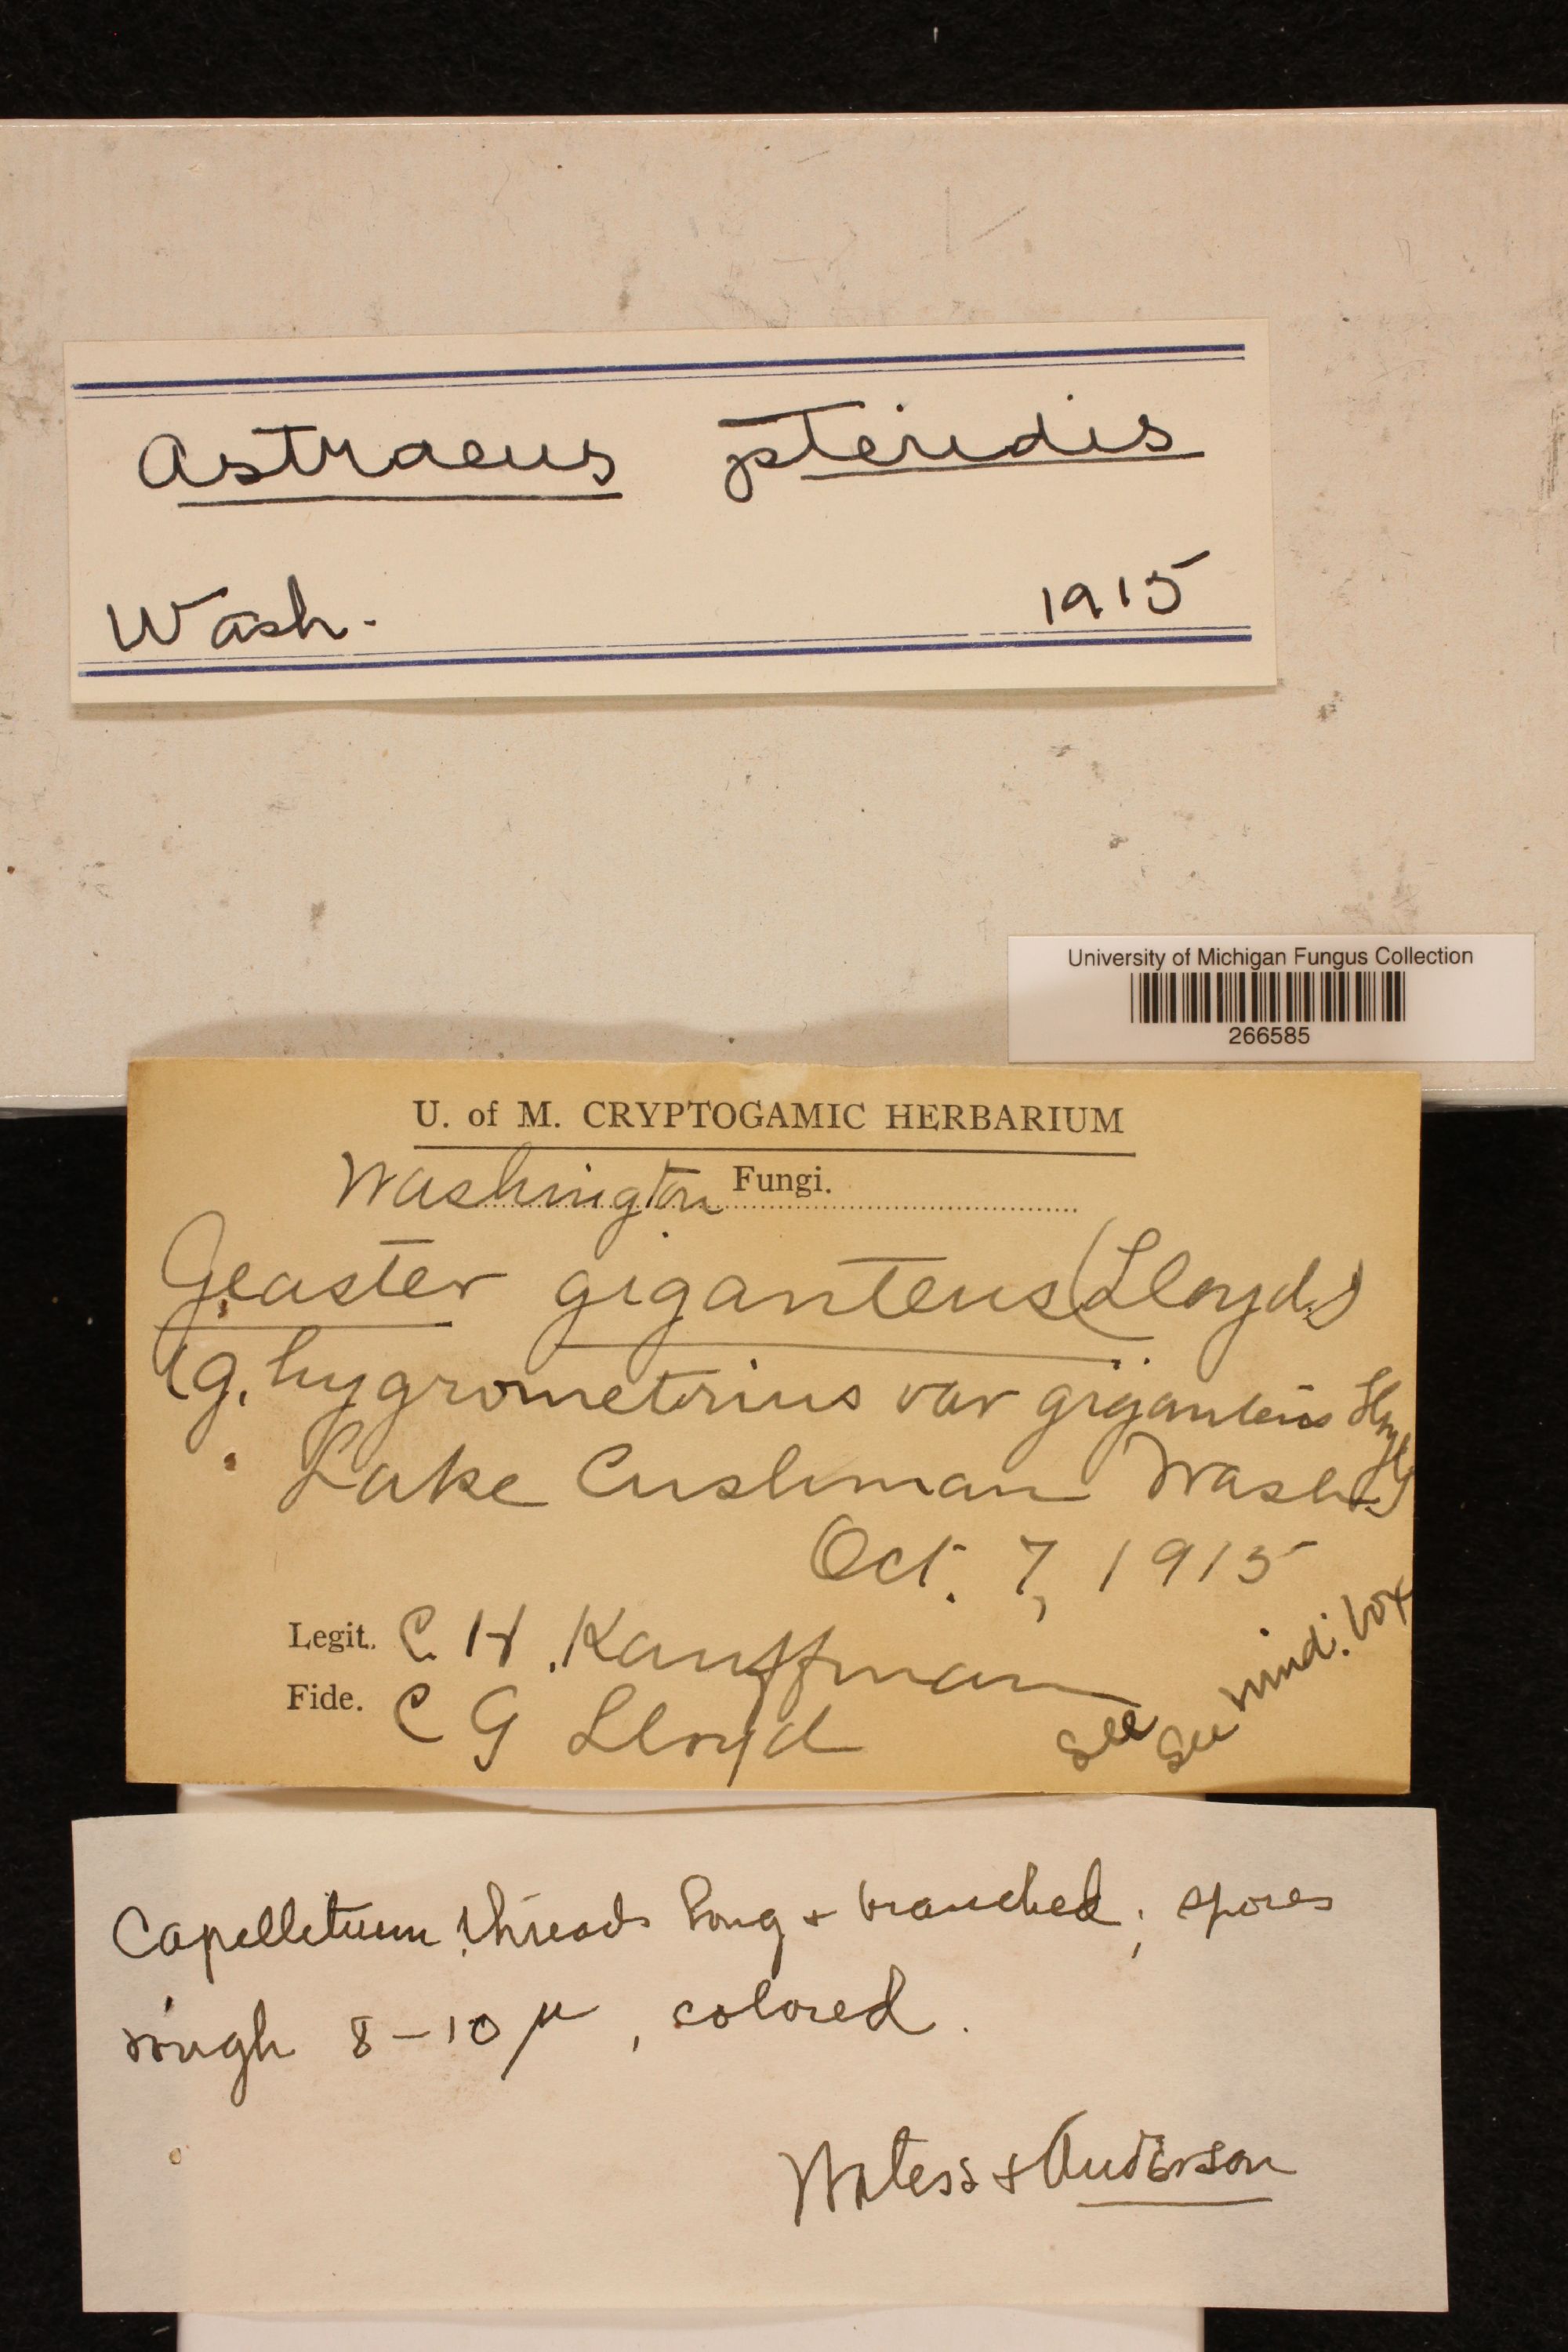 Astraeus pteridis
Wash. 1915
University of Michigan Fungus Collection
266585
U. of M. CRYPTOGAMIC HERBARIUM
Washington Fungi.
Geaster giganteus (Lloyd)
(G. hygrometrius var giganteus
Lake Cushman Wash.
Oct. 7, 1915
Legit. C. H. Kauffman
Fide. C G Lloyd
see
see mind. box
Capellitium threads long + branched; spores
rough 8-10 µ, colored.
+ Anderson